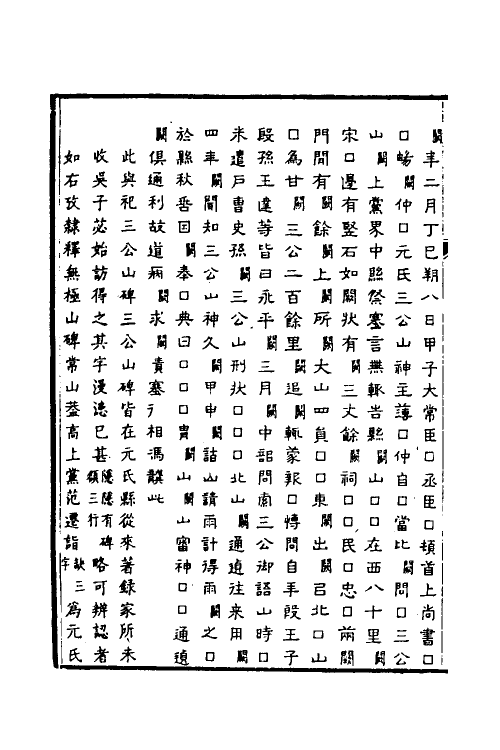 闕年二月丁巳朔八日甲子大常臣口丞臣口頓首上尚書口
口暢闕仲口元氏三公山神主簿口仲自口當比闕問口三公
山闕上黨界中縣祭塞言無輒告縣闕山口口在西八十里闕
宋口邊有竪石如闕狀有闕三丈餘闕祠口口民口忠口兩闕
門間有闕餘闕上闕所闕大山四員口口東闕出闕呂北口山
口為甘闕闕三公二百餘里闕追闕輒蒙報口慱問自手段王子
段孫王達等皆曰永平闕三月闕中部問索三公御語山時口
来遣戶曹史孫闕三公山刑狀口口口北山闕通道往来用闕
四年闕閒知三公山神久闕甲申闕詣山請雨計得雨闕之口
於縣秋香因闕奉口典曰口口口貴闕山闕山審神口口通道
闕俱通利故道病闕求闕貴塞行相馮襲此
此與祀三公山碑三公山碑皆在元氏縣從來著録家所未
收吳子苾始訪得之其字漫漶已甚隱隱有碑額三行略可辨認者
如右攷隸釋無極山碑常山葢高上黨范遷詣缺三字為元氏